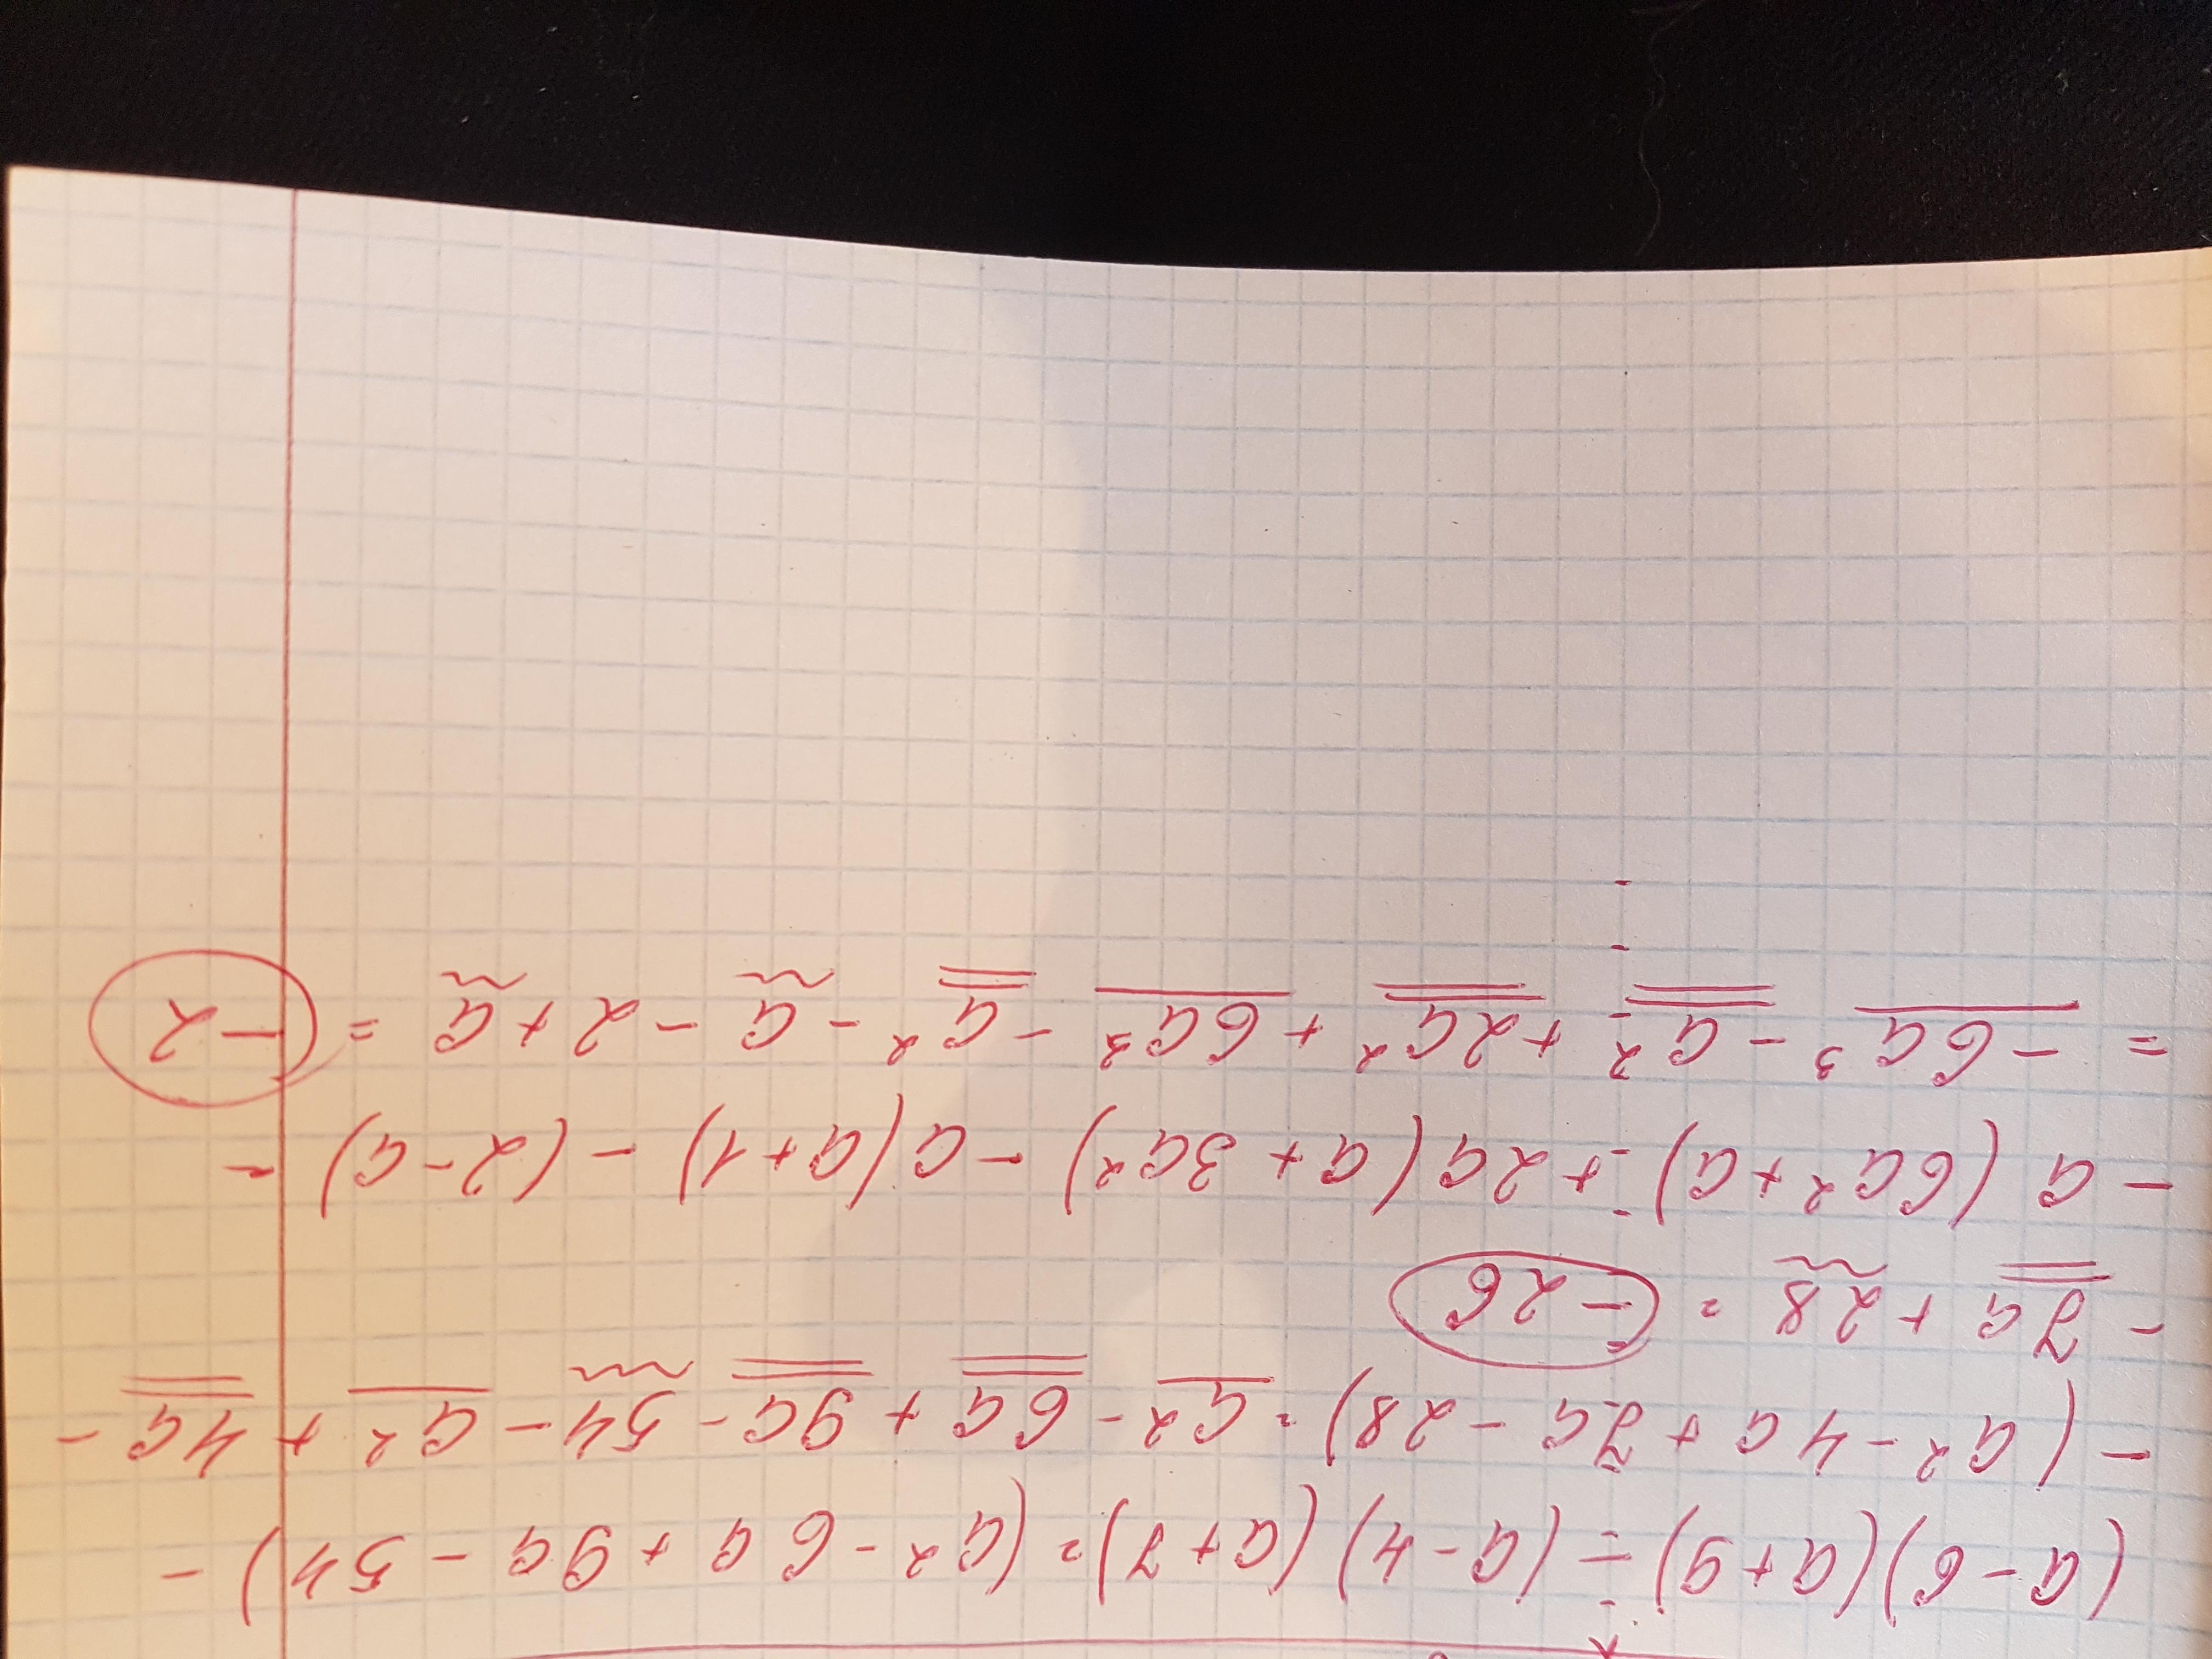 (a-6)(a+9) - (a-4)(a+7) = (a² - 6a + 9a - 54) -
- (a² - 4a + 7a - 28) = a² - 6a + 9a - 54 - a² + 4a -
- 7a + 28 = -26
- a (6a² + a) + 2a (a + 3a²) - a (a+1) - (2-a) =
= -6a³ - a² + 2a² + 6a³ - a² - a - 2 + a = -2